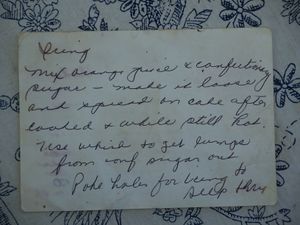 Icing
Mix orange juice & confectionery
sugar — make it loosely
and spread on cake after
cooled & while still hot.
Use whisk to get lumps
from conf sugar out
Poke holes for icing to
seep thru